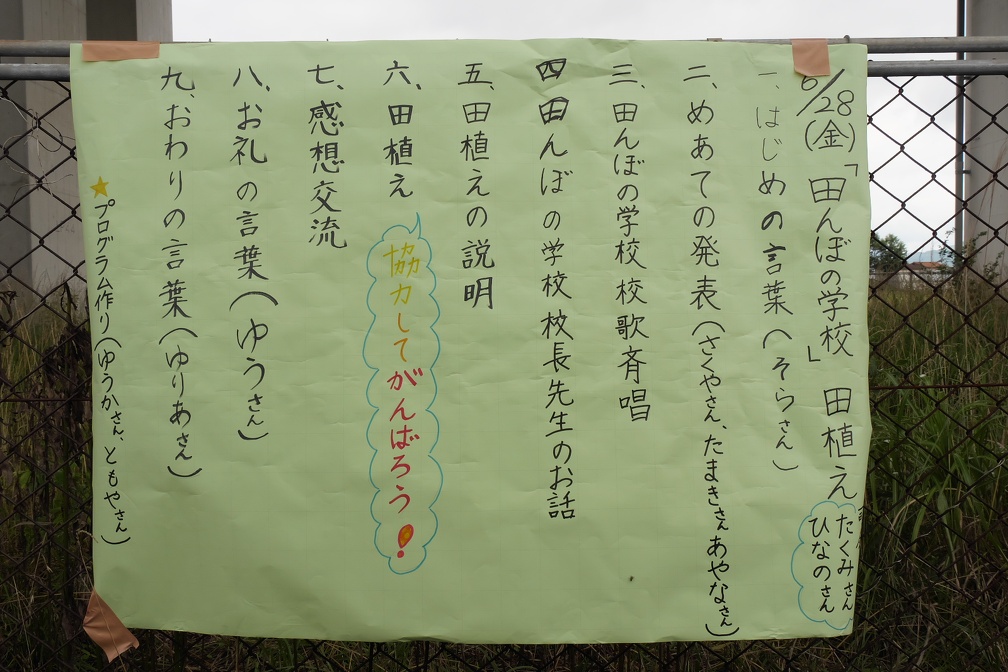 6/28(金)「田んぼの学校」 田植え
たくみさん
ひなのさん
一、はじめの言葉(そらさん)
二、めあての発表(さくやさん、たまきさん あやなさん)
三、田んぼの学校 校歌斉唱
四、田んぼの学校 校長先生のお話
五、田植えの説明
六、田植え
協力してがんばろう!
七、感想交流
八、お礼の言葉(ゆうさん)
九、おわりの言葉(ゆりあさん)
★プログラム作り(ゆうかさん、ともやさん)